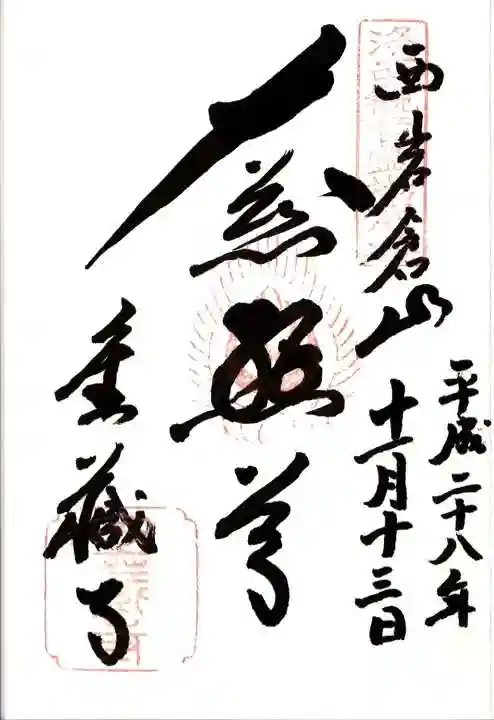 西岩倉山
平成二十八年
十一月十三日
大慈尊
金藏寺